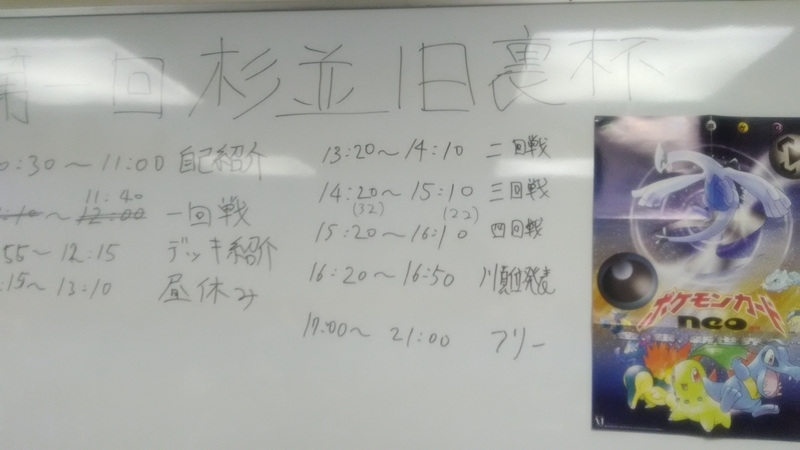 第一回 杉並旧裏杯
0:30～11:00 自己紹介
11:40
1:10～12:00 一回戦
55～12:15 デッキ紹介
:15～13:10 昼休み
13:20～14:10 二回戦
14:20～15:10 三回戦
(32) (22)
15:20～16:10 四回戦
16:20～16:50 順位発表
17:00～21:00 フリー
ポケモンカード
neo